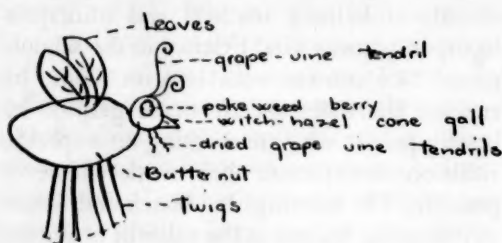 Leaves
grape-vine tendril
poke weed berry
witch hazel cone gall
dried grape vine tendrils
Butternut
Twigs